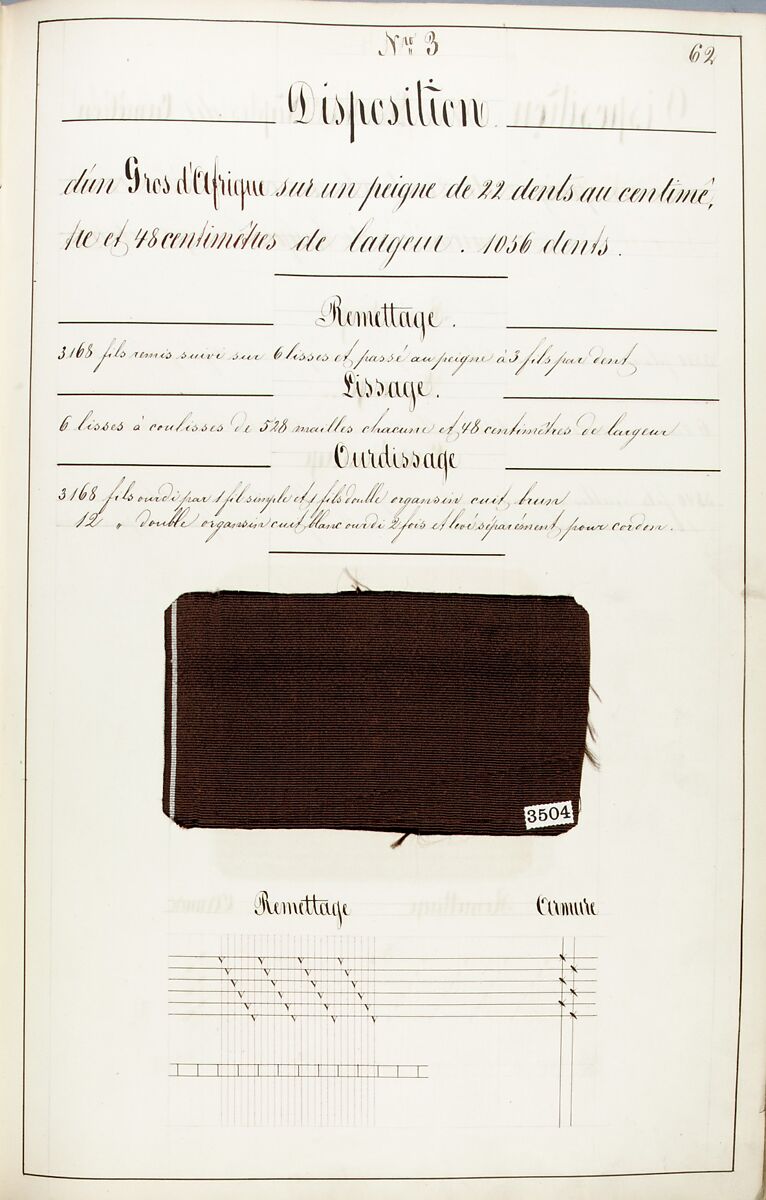 Nro 3
62
Disposition
d'un Gros d'Afrique sur un peigne de 22 dents au centimê,
tre et 48 centimêtres de largeur. 1056 dents.
Remettage.
3168 fils remis suivi sur 6 lisses et passé au peigne à 3 fils par dent
Lissage.
6 lisses à coulisses de 528 mailles chacune et 48 centimêtres de largeur
Ourdissage
3168 fils ourdi par 1 fil simple et 1 fils double organsin cuit brun
12 " double organsin cuit blanc ourdi 2 fois et levé séparément pour cordon.
3504
Remettage
Armure